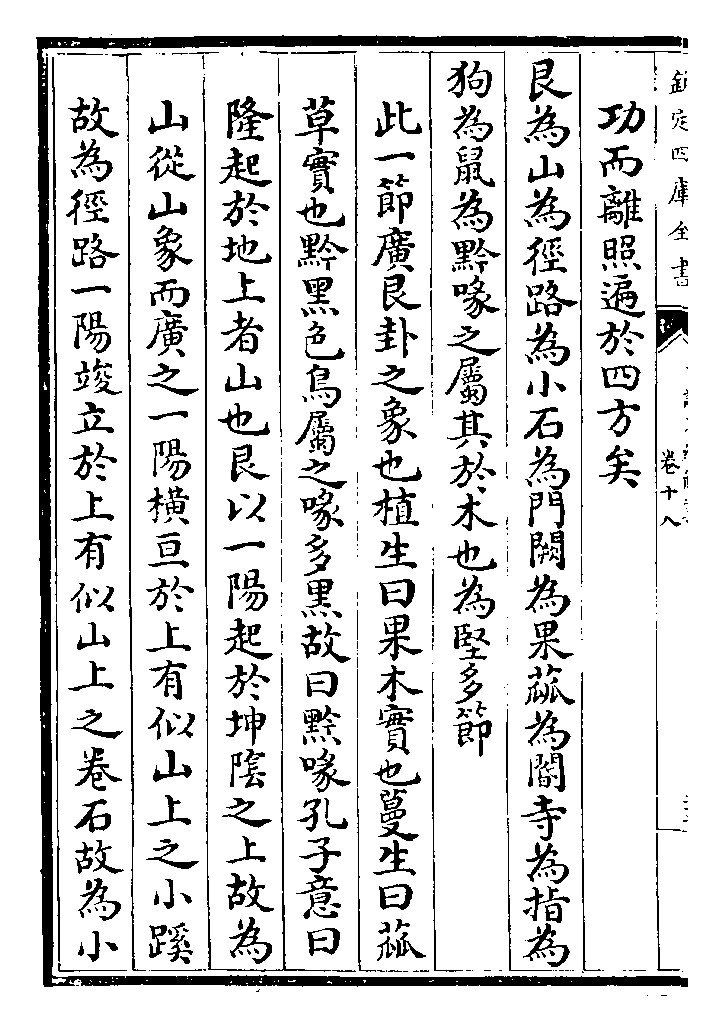 欽定四庫全書
卷十八
功而離照遍於四方矣
艮為山為徑路為小石為門闕為果蓏為閽寺為指為
狗為鼠為黔喙之屬其於木也為堅多節
此一節廣艮卦之象也植生曰果木實也蔓生曰蓏
草實也黔黑色鳥屬之喙多黑故曰黔喙孔子意曰
隆起於地上者山也艮以一陽起於坤陰之上故為
山從山象而廣之一陽橫亘於上有似山上之小蹊
故為徑路一陽竣立於上有似山上之卷石故為小